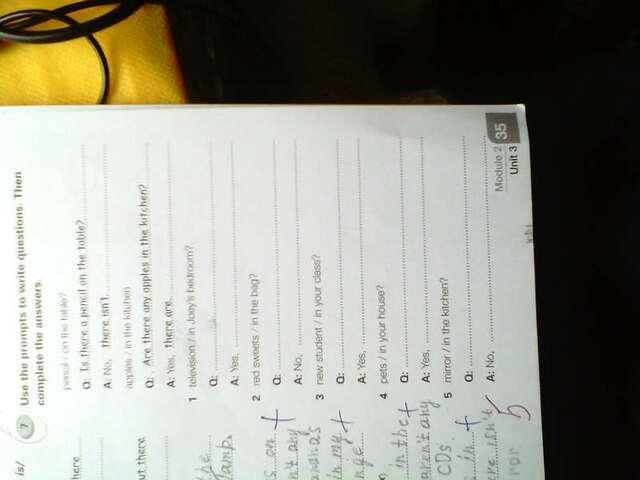 7 Use the prompts to write questions. Then
complete the answers.
pencil / on the table?
Q: Is there a pencil on the table?
A: No, there isn't.
apples / in the kitchen
Q: Are there any apples in the kitchen?
A: Yes, there are.
1 television / in Joey's bedroom?
Q:
A: Yes,
2 red sweets / in the bag?
Q:
A: No,
3 new student / in your class?
Q:
A: Yes,
4 pets / in your house?
Q:
A: Yes,
5 mirror / in the kitchen?
Q:
A: No,
Module 2 35
Unit 3
is/
here
out there
lamp.
s on +
n't any
in my +
in the +
aren't any
CDs.
in +
isn't
5